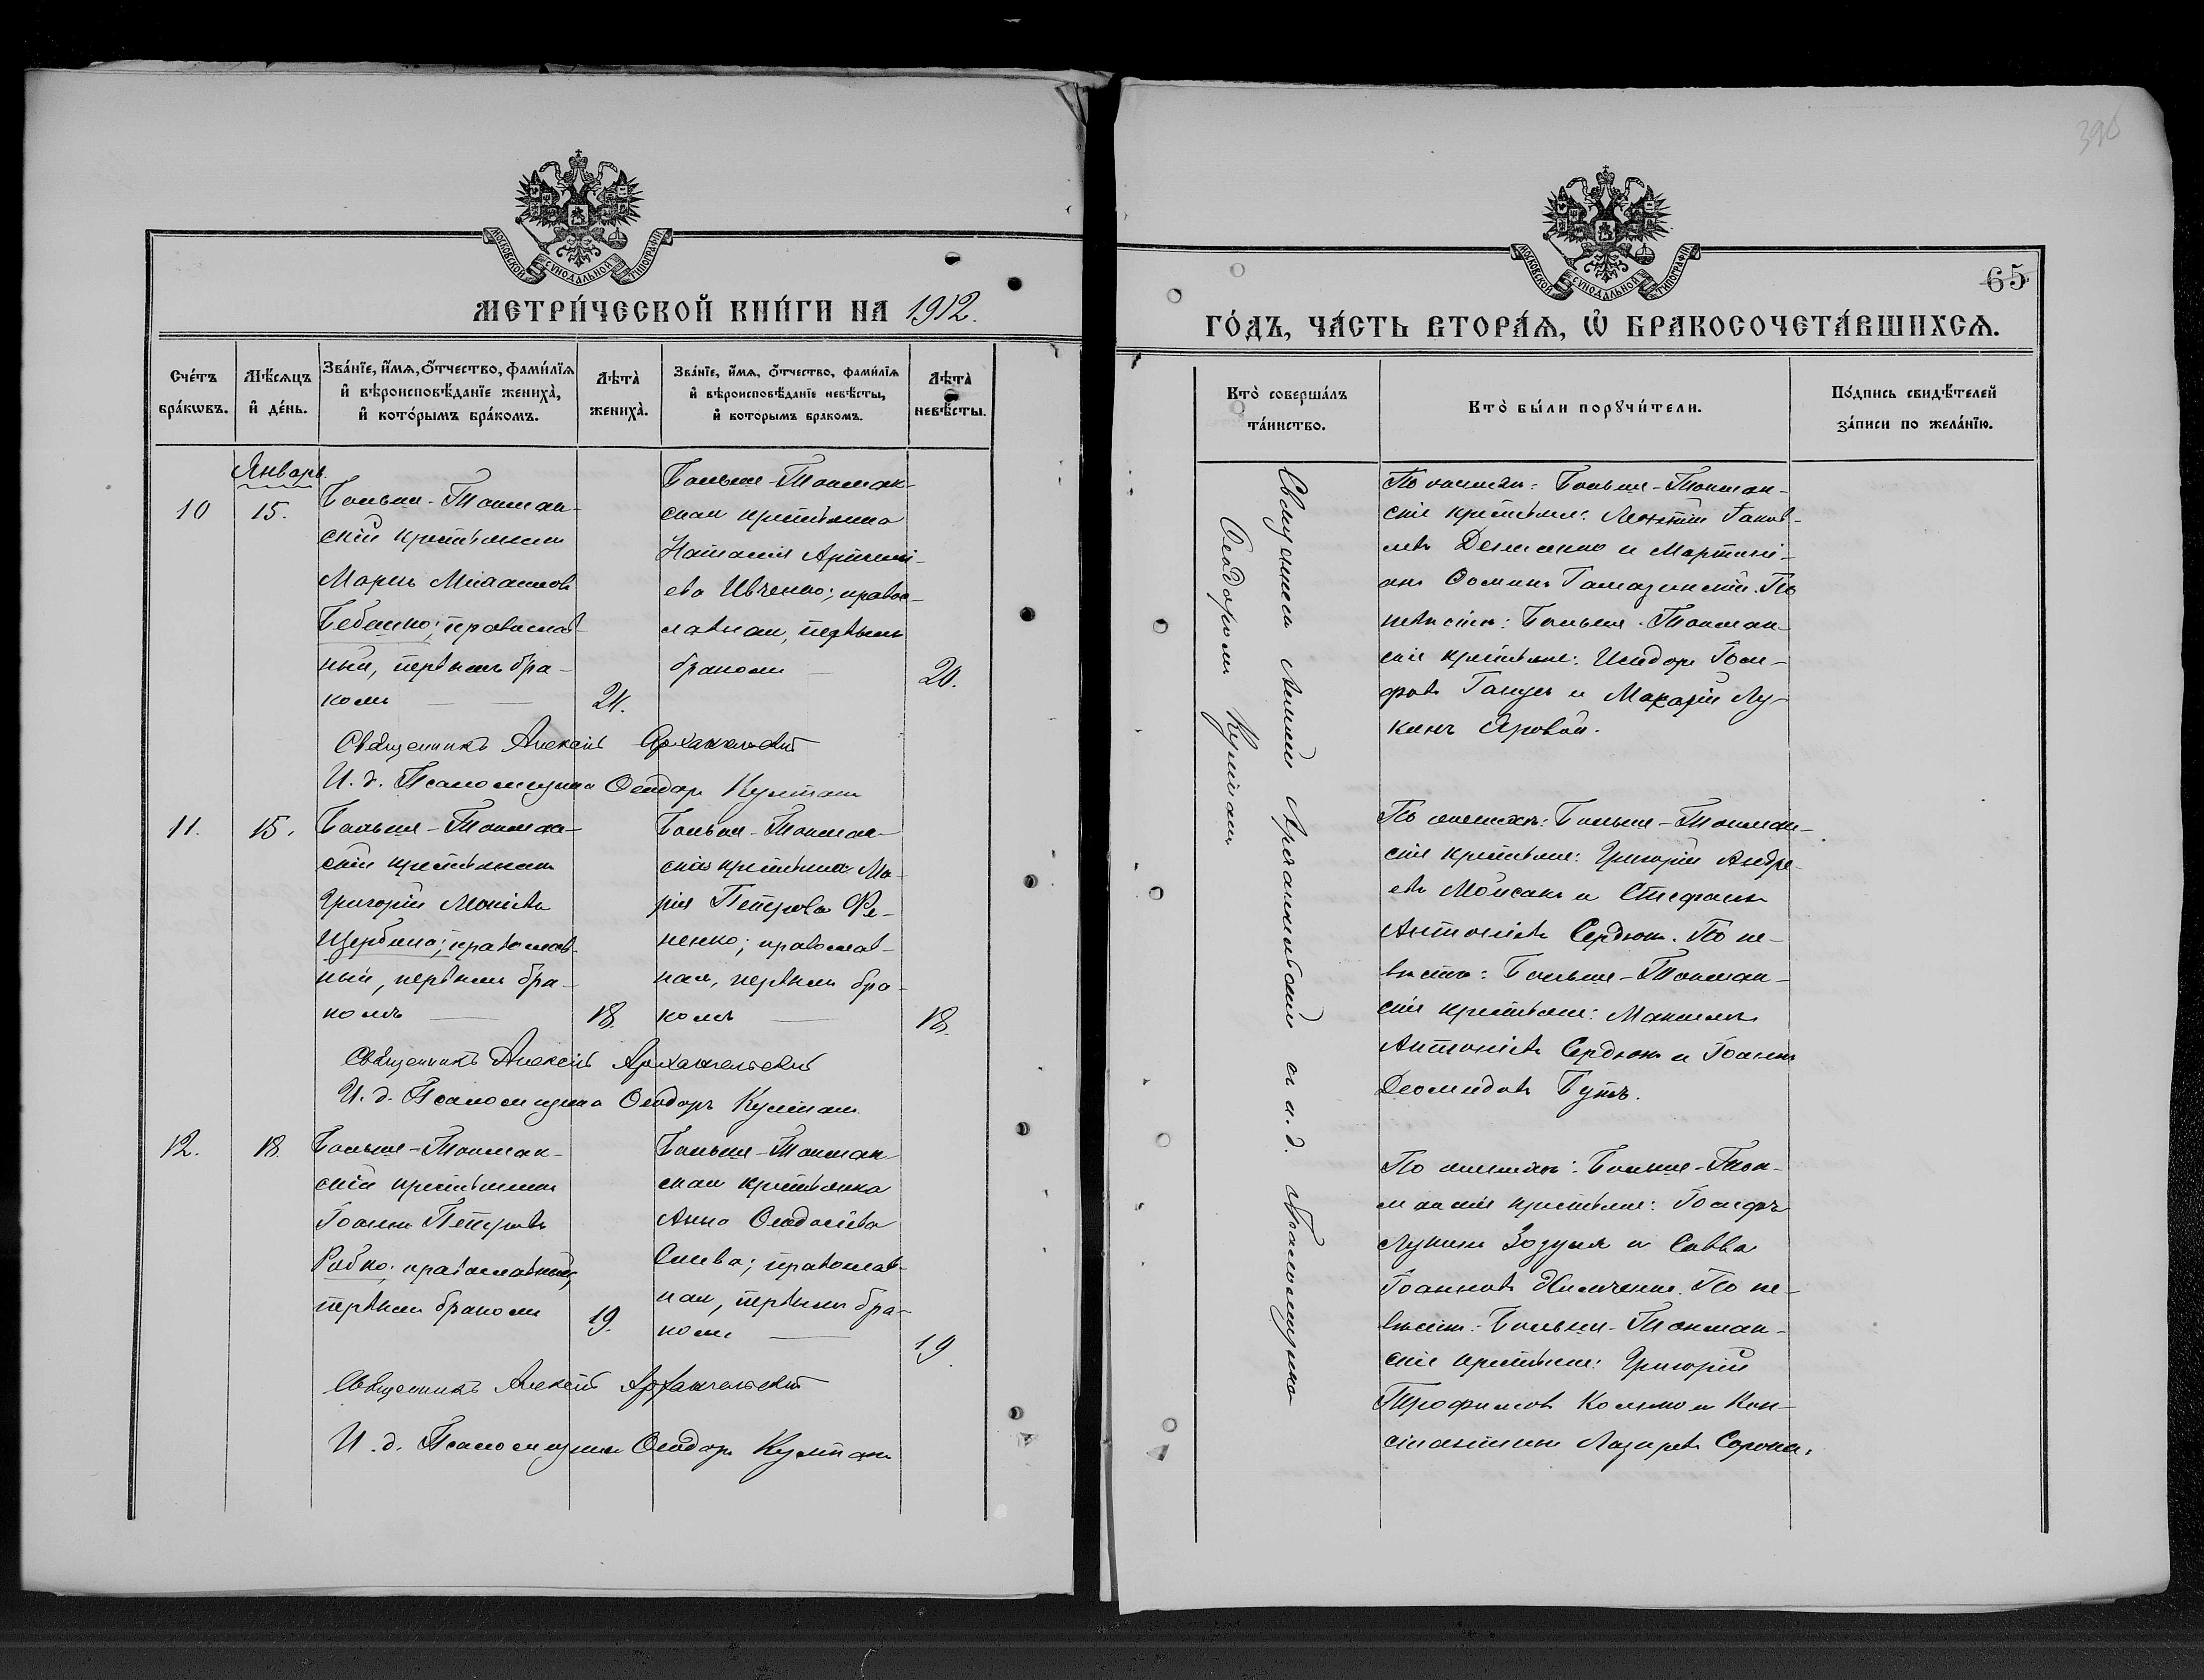 396
МОСКОВСКОЙ СУНОДАЛЬНОЙ ТИПОГРАФIИ
МЕТРИ́ЧЕСКОЙ КНИ́ГИ НА 1912.
Сче́тъ бра́кѡвъ.
Мѣ́сяцъ и҆ де́нь.
Зва́нїе, и҆́мя, ѻ҆́тчество, фами́лїя и҆ вѣроисповѣ́данїе жениха̀, и҆ кото́рымъ бра́комъ.
Лѣта̀ жениха̀.
Зва́нїе, и҆́мя, ѻ҆́тчество, фами́лїя и҆ вѣроисповѣ́данїе невѣ́сты, и҆ которымъ бракомъ.
Лѣта̀ невѣ́сты.
Январь.
10
15.
Больше-Токмак-
скій крестьянинъ
Марк
Бебешко; православ-
ный, первымъ бра-
комъ
24.
Больше-Токмак-
ская крестьянка
Наталія Артемі-
ева Ивченко; правос-
лавная, первымъ
бракомъ
20.
Священникъ Алексій Архангельскій
И. д. Псаломщика Ѳеодоръ Кулишъ
11.
15.
Больше-Токмак-
скій крестьянинъ
Григорій
Щербина; православ-
ный, первымъ бра-
комъ
18.
Больше-Токмак-
ская крестьянка Ма-
рія Петрова Фе-
ненко; православ-
ная, первымъ бра-
комъ
18.
Священникъ Алексій Архангельскій
И. д. Псаломщика Ѳеодоръ
12.
18.
Больше-Токмак-
скій крестьянинъ
Іоаннъ Петровъ
Рябко; православный,
первымъ бракомъ
19.
Больше-Токмак-
ская крестьянка
Анна Ѳеодосіева
Слива; православ-
ная, первымъ бра-
комъ
19.
Священникъ Алексій Архангельскій
И. д. Псаломщика Ѳеодоръ
МОСКОВСКОЙ СУНОДАЛЬНОЙ ТИПОГРАФIИ
65
ГО́ДЪ, ЧА́СТЬ ВТОРА́Я, Ѡ҆ БРАКОСОЧЕТА́ВШИХСЯ.
Кто̀ соверша́лъ та́инство.
Кто̀ бы́ли порꙋчи́тели.
По́дпись свидѣ́телей за́писи по жела́нїю.
Священникъ Алексій Архангельскій съ и. д. псаломщика
Ѳеодоромъ
По женихѣ: Больше-Токмак-
скіе крестьяне: Іаков-
левъ и Мартині-
анъ Ѳоминъ По
невѣстѣ: Больше-Токмак-
скіе крестьяне: Исидоръ Іоси-
фовъ и Макарій Лу-
кинъ Яровой.
По женихѣ: Больше-Токмак-
скіе крестьяне: Григорій Андре-
евъ Мойсакъ и Стефанъ
Антоніевъ Сердюк. По не-
вѣстѣ: Больше-Токмак-
скіе крестьяне: Максимъ
Антоніевъ Сердюкъ и Іоаннъ
Деомидовъ Бутъ.
По женихѣ: Больше-Ток-
макскіе крестьяне: Іосифъ
Лукинъ Зозуля и Савва
Іоанновъ По не-
вѣстѣ: Больше-Токмак-
скіе крестьяне: Григорій
Трофимовъ и Кон-
стантинъ Лазаревъ Сорока.